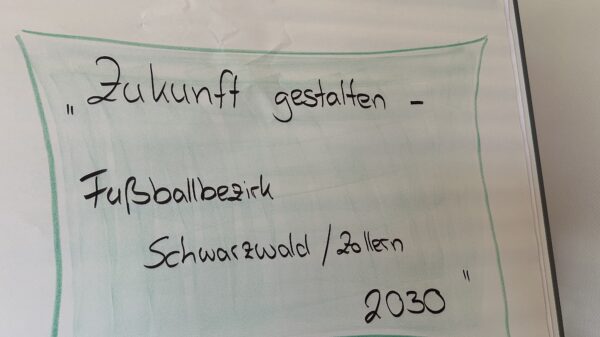 „Zukunft gestalten -
Fußballbezirk
Schwarzwald/Zollern
2030"